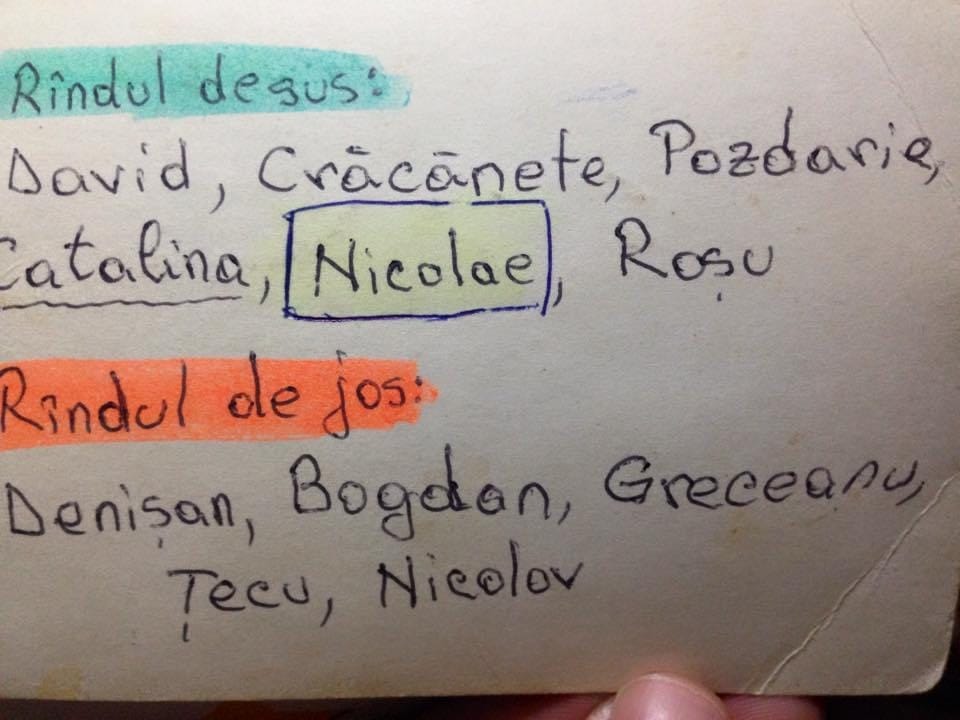 Rîndul de sus:
David, Crăcănete, Pozdarie,
Catalina, Nicolae, Roșu
Rîndul de jos:
Denișan, Bogdan, Greceanu,
Țecu, Nicolov